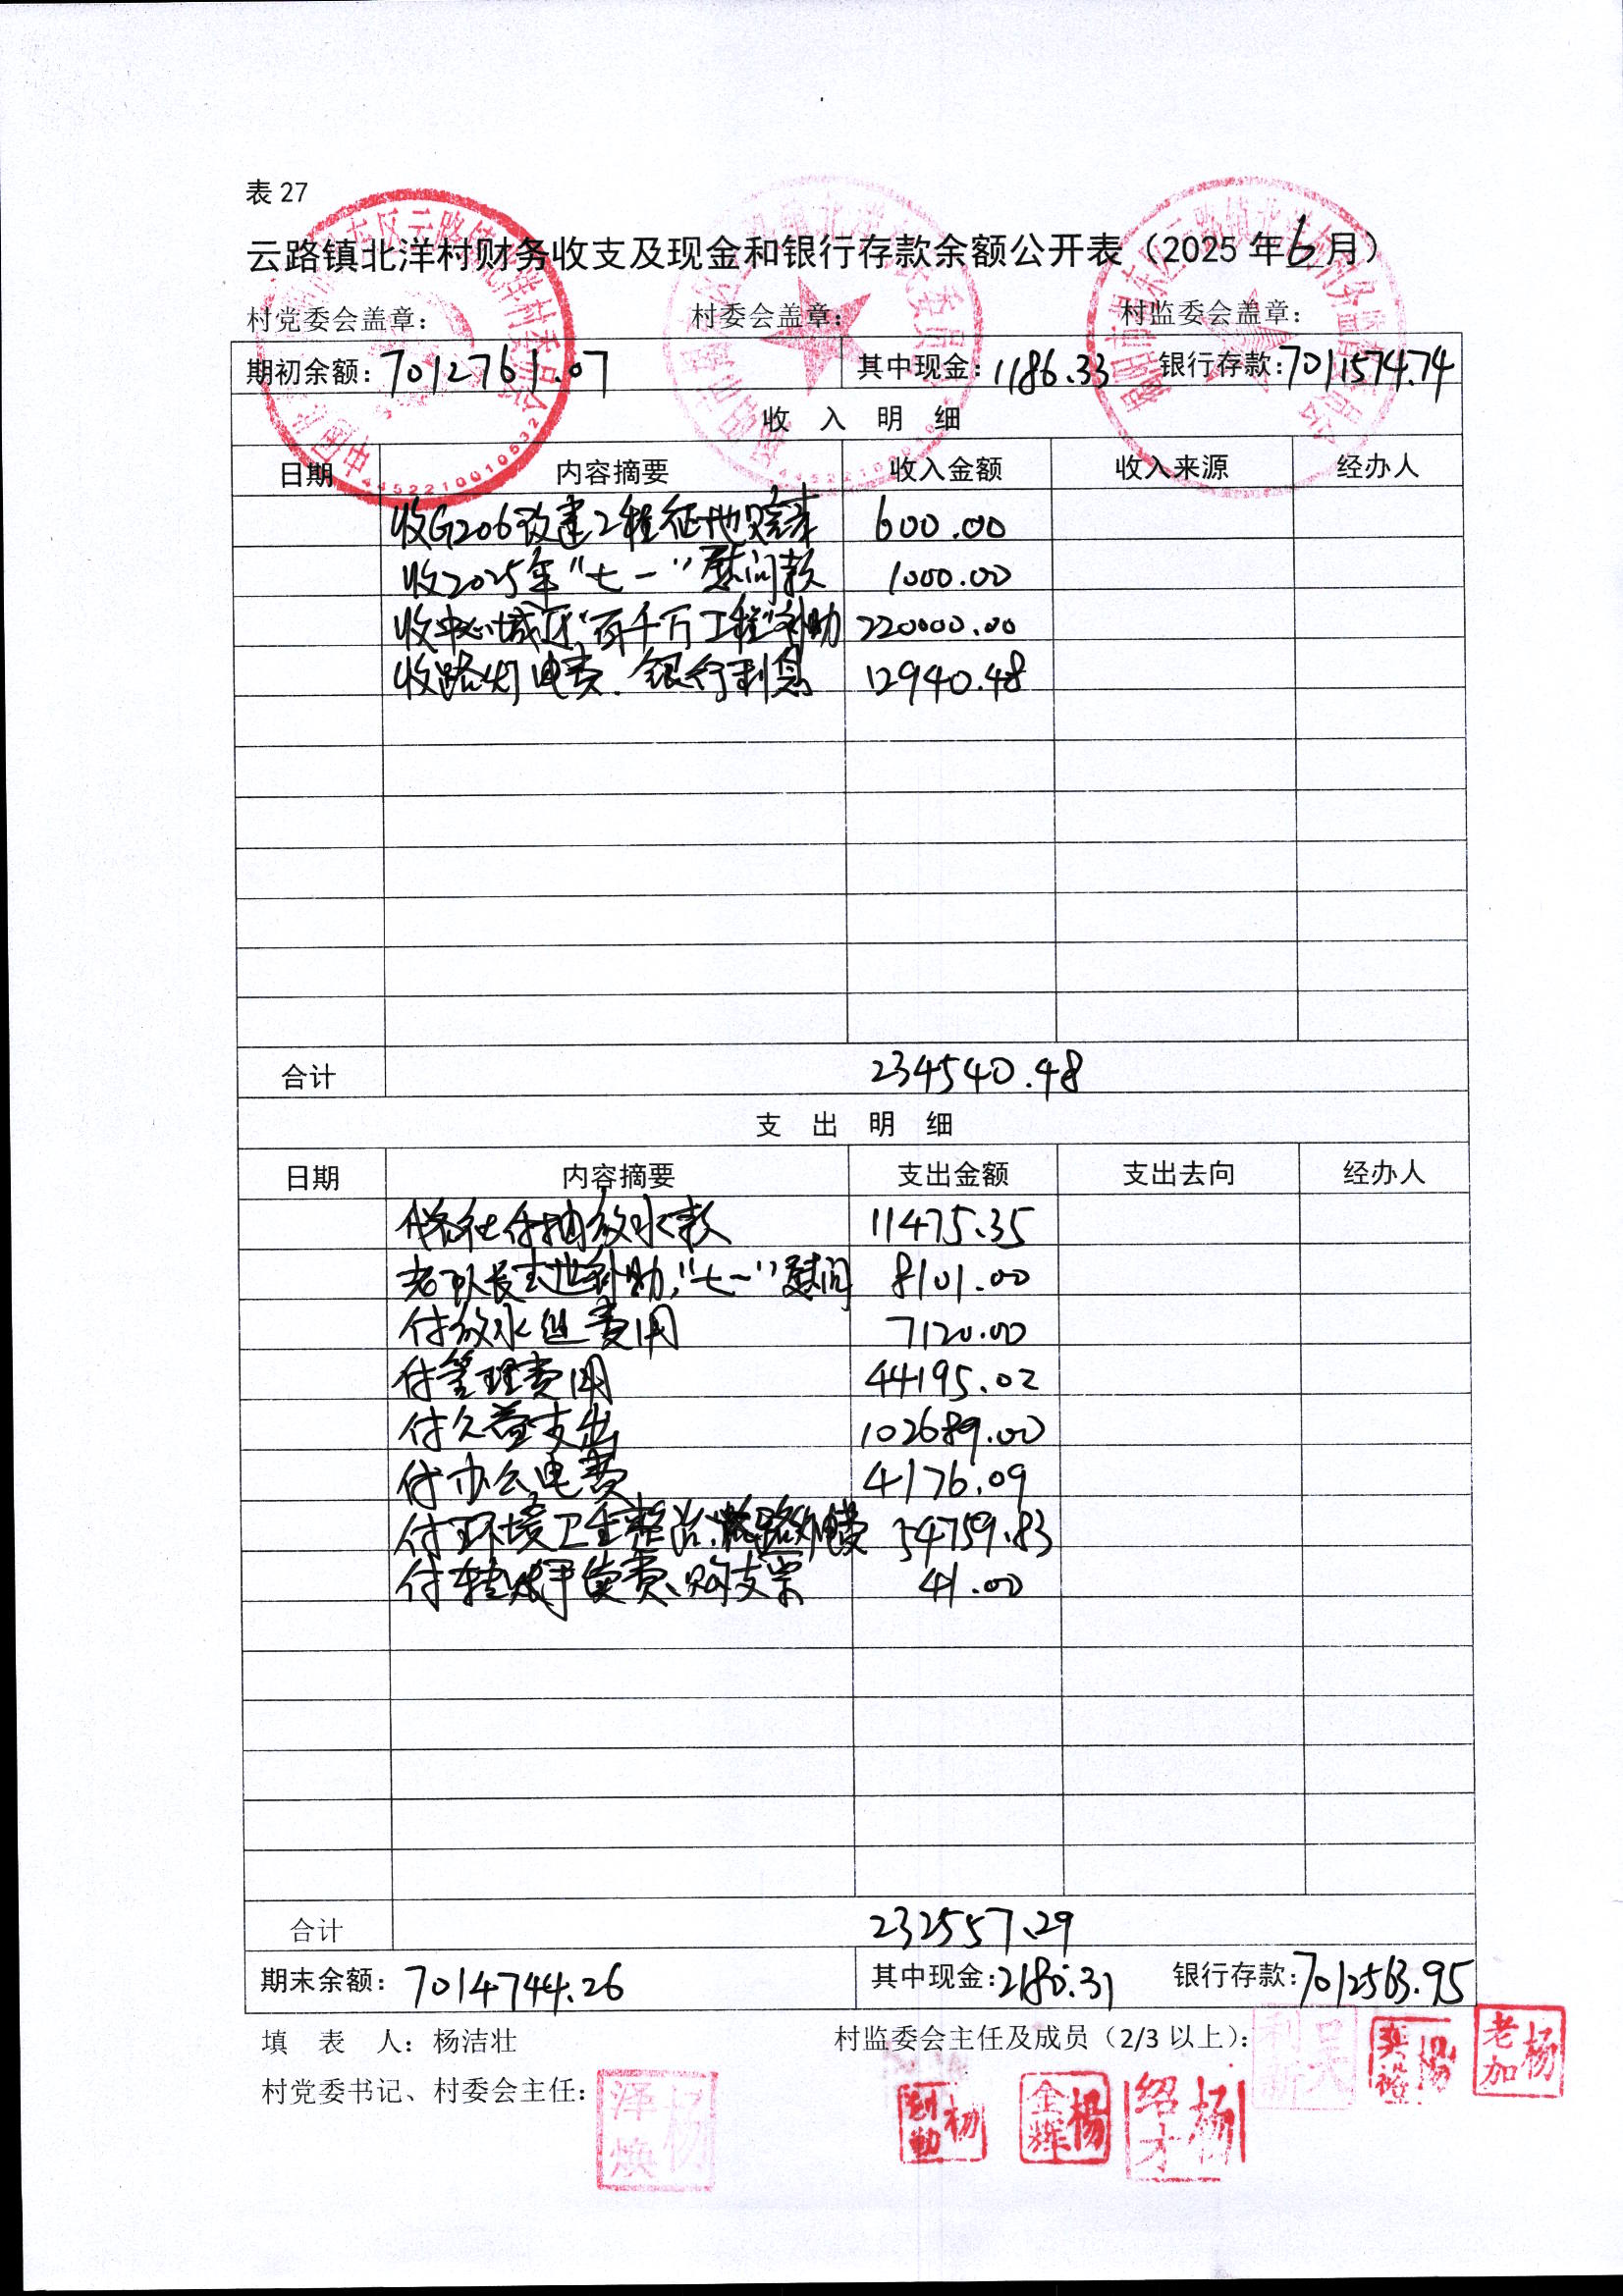 表 27
云路镇北洋村财务收支及现金和银行存款余额公开表（2025 年6月）
村党委会盖章： 村委会盖章： 村监委会盖章：
期初余额：7012761.07 其中现金：1186.33 银行存款：7011574.74
收 入 明 细
日期 内容摘要 收入金额 收入来源 经办人
收G206改建工程征地 600.00
收2025年“七一”慰问款 1000.00
收中心城区“百千万工程”补助 220000.00
收路灯电费、银行利息 12940.48
合计 234540.48
支 出 明 细
日期 内容摘要 支出金额 支出去向 经办人
社付抽放水款 11475.35
老队长 补助，“七一”慰问 8101.00
付放水 费用 7120.00
付管理费用 44195.02
付公益支出 102689.00
付办公电费 4176.09
付环境卫生整治、路灯电费 54759.83
付转账手续费、购支票 41.00
合计 232557.29
期末余额：7014744.26 其中现金：2180.31 银行存款：7012563.95
填 表 人：杨洁壮 村监委会主任及成员（2/3 以上）：
村党委书记、村委会主任：
杨泽焕
杨金辉
杨绍才
杨老加
4452210010532